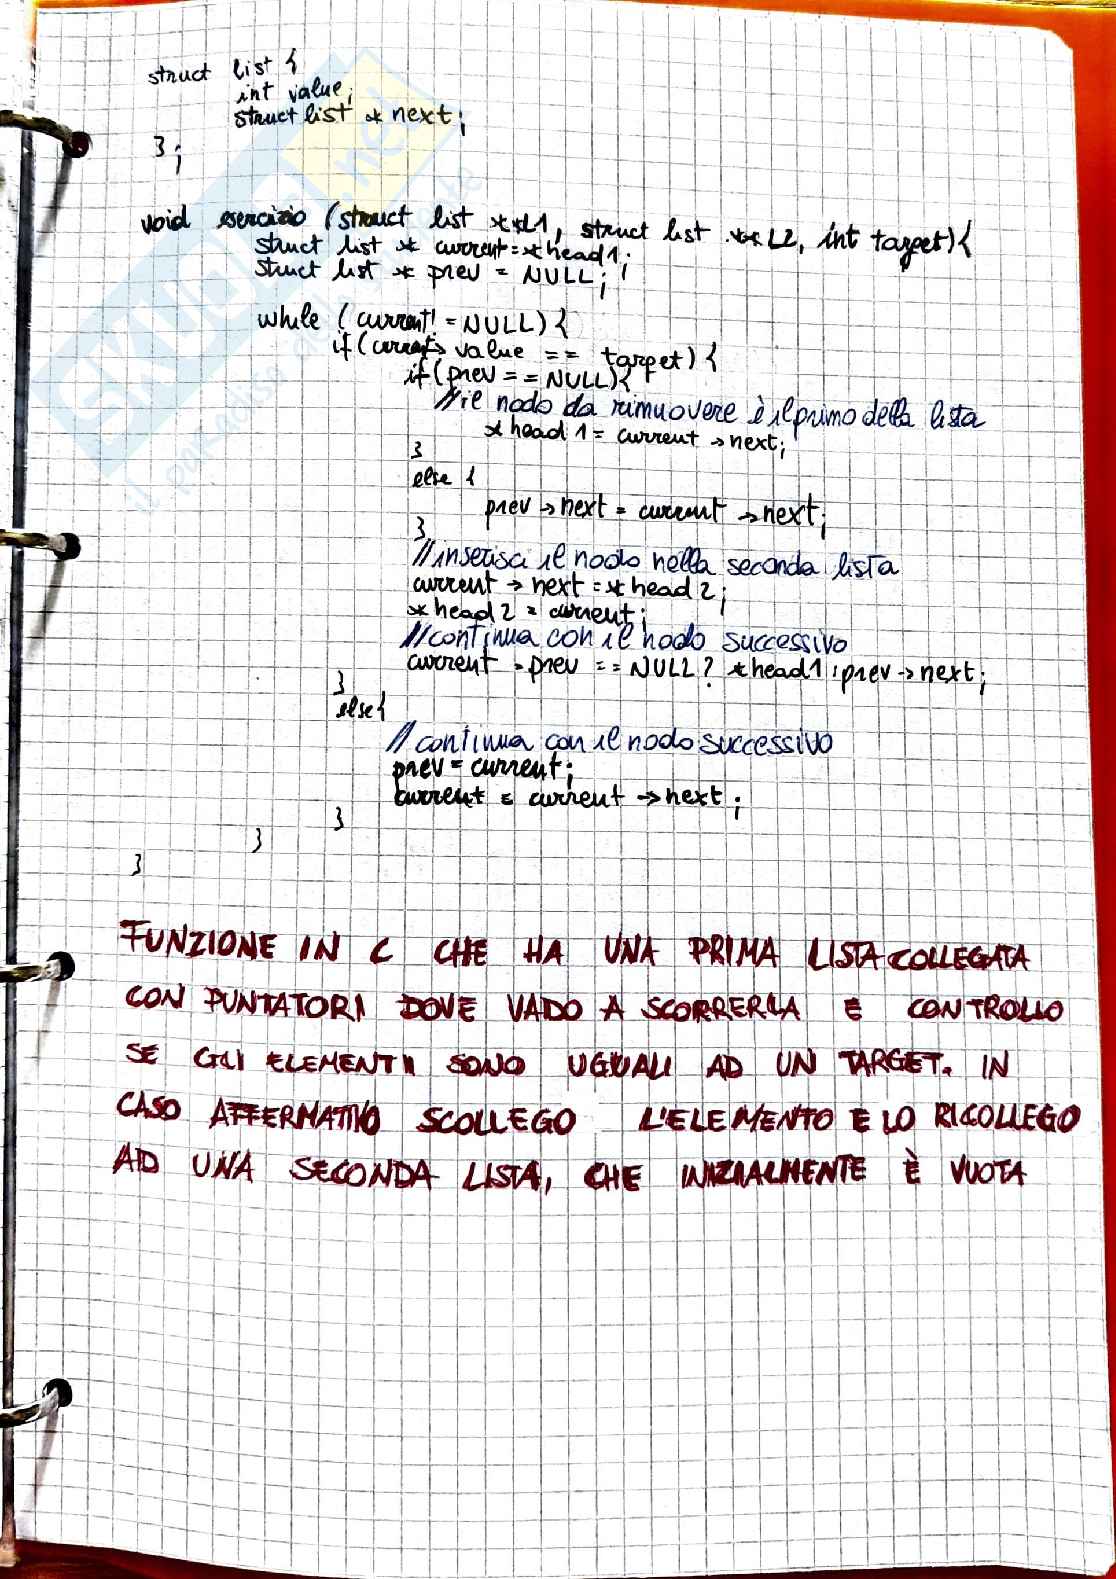 struct list {
int value;
struct list * next;
};
void esercizio (struct list **L1, struct list **L2, int target){
struct list * current = *head1;
struct list * prev = NULL;
while (current != NULL) {
if (current -> value == target) {
if (prev == NULL){
//il nodo da rimuovere è il primo della lista
*head1 = current -> next;
}
else {
prev -> next = current -> next;
}
//inserisci il nodo nella seconda lista
current -> next = *head2;
*head2 = current;
//continua con il nodo successivo
current = prev == NULL? *head1 : prev -> next;
}
else{
// continua con il nodo successivo
prev = current;
current = current -> next;
}
}
}
FUNZIONE IN C CHE HA UNA PRIMA LISTA COLLEGATA
CON PUNTATORI DOVE VADO A SCORRERLA E CONTROLLO
SE GLI ELEMENTI SONO UGUALI AD UN TARGET. IN
CASO AFFERMATIVO SCOLLEGO L'ELEMENTO E LO RICOLLEGO
AD UNA SECONDA LISTA, CHE INIZIALMENTE È VUOTA
SKUOLA.net
il paradiso dello studente